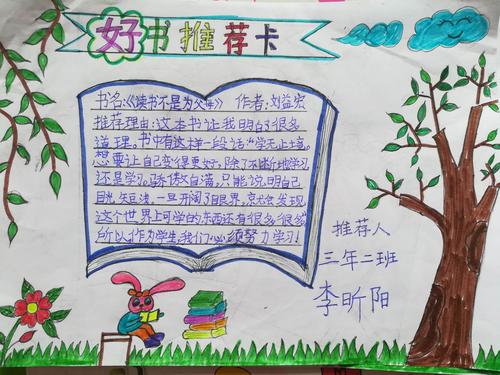 好书推荐卡
书名:《读书不是为父母》 作者:刘益宏
推荐理由:这本书让我明白了很多
道理。书中有这样一段话:“学无止境。
想要让自己变得更好,除了不断地学习
还是学习。骄傲自满,只能说明自己
目光短浅,一旦开阔了眼界,就会发现,
这个世界上可学的东西还有很多很多
所以作为学生,我们必须努力学习!
推荐人
三年二班
李昕阳